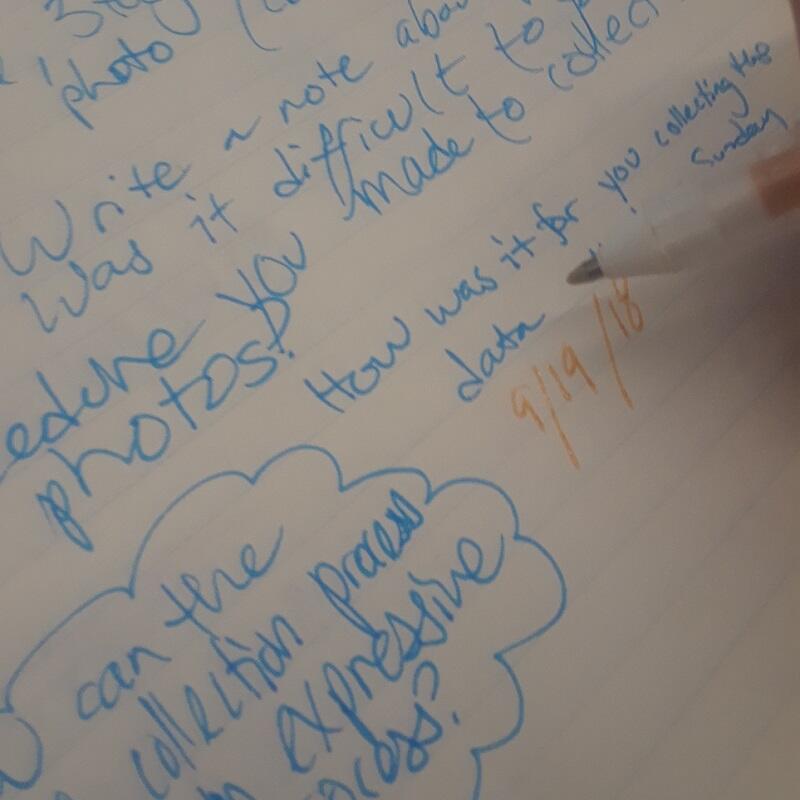 photo
Write a note abou
Was it difficult to
you made to collect
photos?
How was it for you collecting this
data Sunday
9/19/18
can the
collection process
expressive